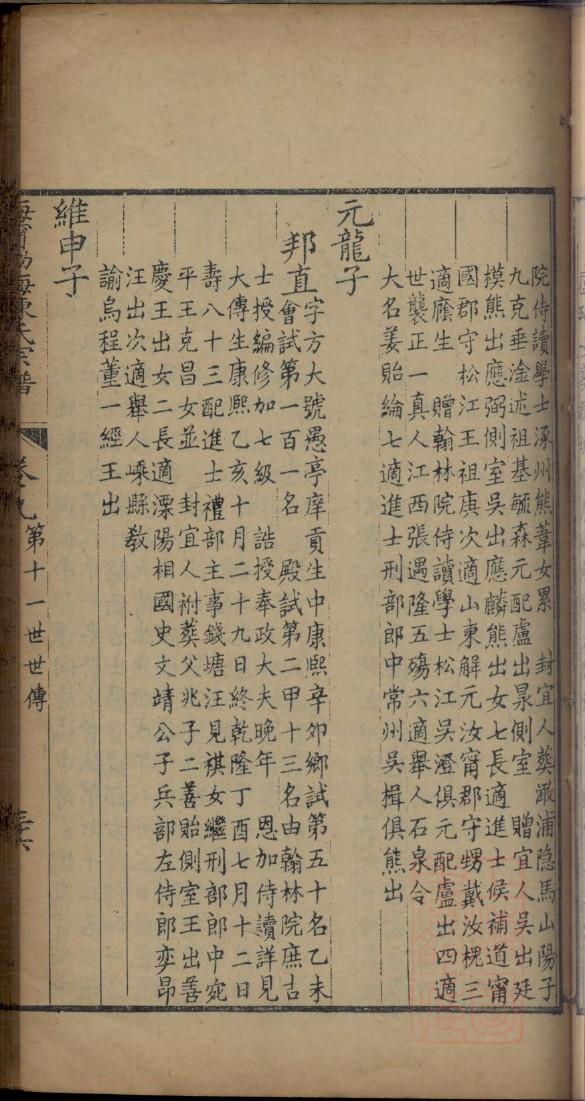 院侍讀學士涿州熊葦女累　封宜人葬澉浦隐馬山陽子
九克垂淦述祖基毓森元配盧出㬎側室　贈宜人吴出廷
摸熊出應弼側室吴出應麟熊出女七長適進士侯補道甯
國郡守松江王祖庚次適山東解元汝甯郡守甥戴汝槐三
適廕生　贈翰林院侍讀學士松江吴澄俱元配盧出四適
世襲正一真人江西張遇隆五殤六適舉人石泉令
大名姜貽綸七適進士刑部郎中常州吴揖俱熊出
元龍子
邦直字方大號愚亭庠貢生中康熙辛夘鄉試第五十名乙未
會試第一百一名　殿試第二甲十三名由翰林院庶吉
士授編修加七級　誥授奉政大夫晚年　恩加侍讀詳見
大傳生康熙乙亥十月二十九日終乾隆丁酉七月十二日
壽八十三配進士禮部主事錢塘汪見祺女繼刑部郎中宛
平王克昌女並　封宜人祔葬父兆子二善貽側室王出善
慶王出女二長適溧陽相國史文靖公子兵部左侍郎奕昂
汪出次適舉人嵊縣敎
諭烏程董一經王出
維申子
海寧渤海陳氏宗譜　卷九　第十一世世傳